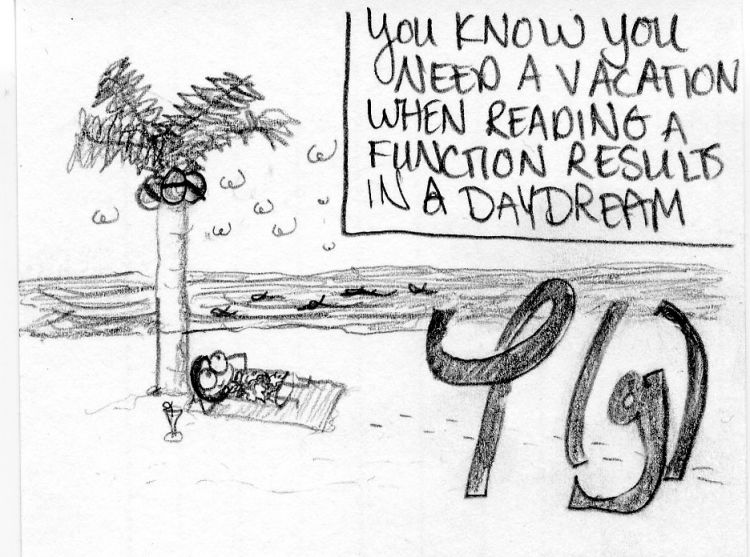 YOU KNOW YOU
NEED A VACATION
WHEN READING A
FUNCTION RESULTS
IN A DAYDREAM